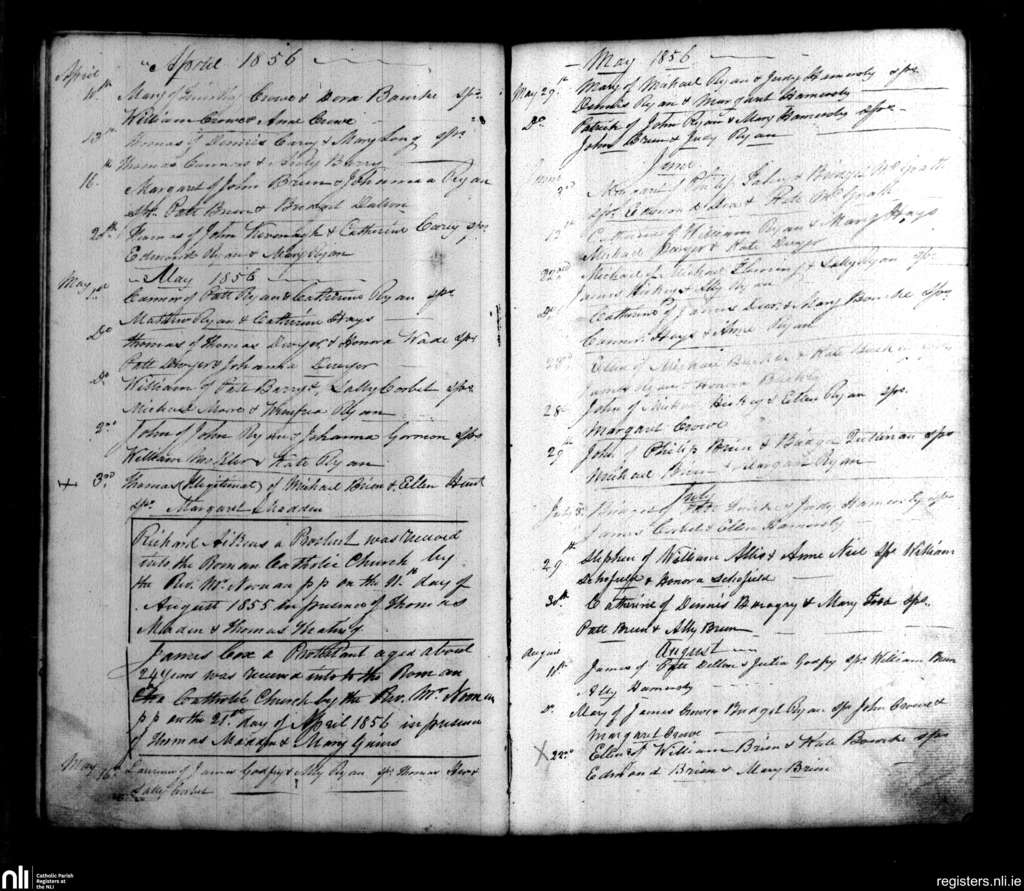 April 1856
April
11th Mary of Timothy Crowe & Dora Bourke Sps.
William Crowe & Anne Crowe
13th Thomas of Dennis Carey & Mary Long Sps.
Thomas Connors & Berry
16 Margaret of John Brien & Johanna Ryan
Sps. Patt Brien & Bridget Dalton
20th of John & Catherine Carey Sps
Edmond Ryan & Mary Ryan
May 1856
May 1st of Patt Ryan & Catherine Ryan Sps.
Mathew Ryan & Catherine Hays
Do Thomas of Thomas Dwyer & Honora Wade Sps
Patt Dwyer & Johanna Dwyer
Do William of Patt Barry & Sally Corbet Sps
Michael Moore & Winifred Ryan
2nd John of John Ryan & Johanna Gorman Sps
William & Kate Ryan
3rd Thomas (Illegitimate) of Michael Brien & Ellen Hunt
Sps. Margaret Madden
Richard a was received
into the Roman Catholic Church by
the Rev. Mr. Noonan p p on the 11th day of
August 1855 in presence of Thomas
Madden & Thomas
James Cox a Protestant aged about
24 years was received into the Roman
Catholic Church by the Rev. Mr. Noonan
p p on the 21st day of April 1856 in presence
of Thomas Madden & Mary
May 16th Laurence of James Godfry & Ally Ryan Sps Thomas
Sally Corbet
May 1856
May 29th Mary of Michael Ryan & Judy Hamersly Sps.
Dennis Ryan & Margaret Hamersly
Do. Patrick of John Ryan & Mary Hamersly Sps
John Brien & Judy Ryan
June
June 3rd Margaret of Philip & Bridget McGrath
Sps. Edmond & Kate McGrath
12th Catherine of William Ryan & Mary Hays
Michael Dwyer & Kate Dwyer
22nd Michael of Michael Fleming & Sally Ryan Sps.
James Hickey & Ally Ryan
Do. Catherine of James & Mary Bourke Sps.
Connor Hays & Anne Ryan
Ellen of Michael & Kate
James Ryan & Honora
28 John of Hickey & Ellen Ryan Sps.
Margaret Crowe
29th John Philip Brien & Bridget Quillinan Sps
Michael Brien & Margaret Ryan
July
July of Patt & Judy Hamersly Sps
James Corbet & Ellen Hamersly
29th Stephen of William Allis & Anne Neil Sps William
Schofield & Honora Schofield
30th Catherine of Dennis & Mary Sps.
Patt Brien & Ally Brien
August
August 11th James of Patt Dillon & Julia Godfry Sps William Brien
Ally Hamersly
Do. Mary of James Crowe & Bridget Ryan Sps John Crowe &
Margaret Crowe
22nd Ellen of William Brien & Kate Bourke Sps
Edmond Brien & Mary Brien
nli
Catholic Parish
Registers at
the NLI
registers.nli.ie